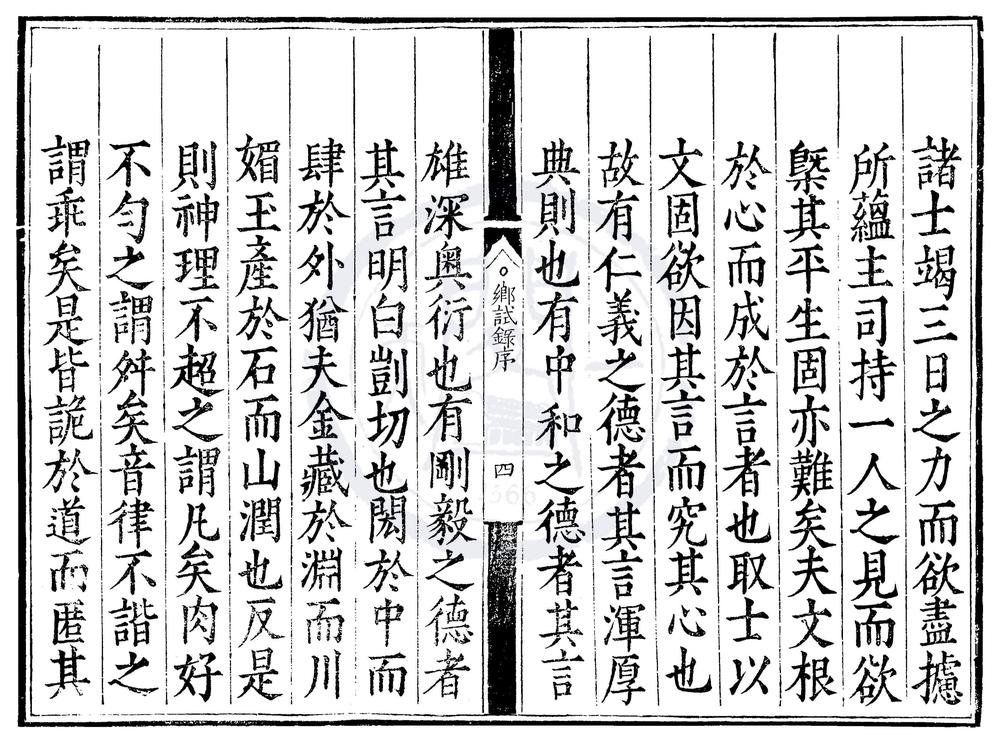 諸士竭三日之力而欲盡攄
所蘊主司持一人之見而欲
槩其平生固亦難矣夫文根
於心而成於言者也取士以
文固欲因其言而究其心也
故有仁義之德者其言渾厚
典則也有中和之德者其言
鄉試錄序
四
雄深奧衍也有剛毅之德者
其言明白剴切也閎於中而
肆於外猶夫金藏於淵而川
媚玉產於石而山潤也反是
則神理不超之謂凡矣肉好
不勻之謂舛矣音律不諧之
謂乖矣是皆詭於道而匿其